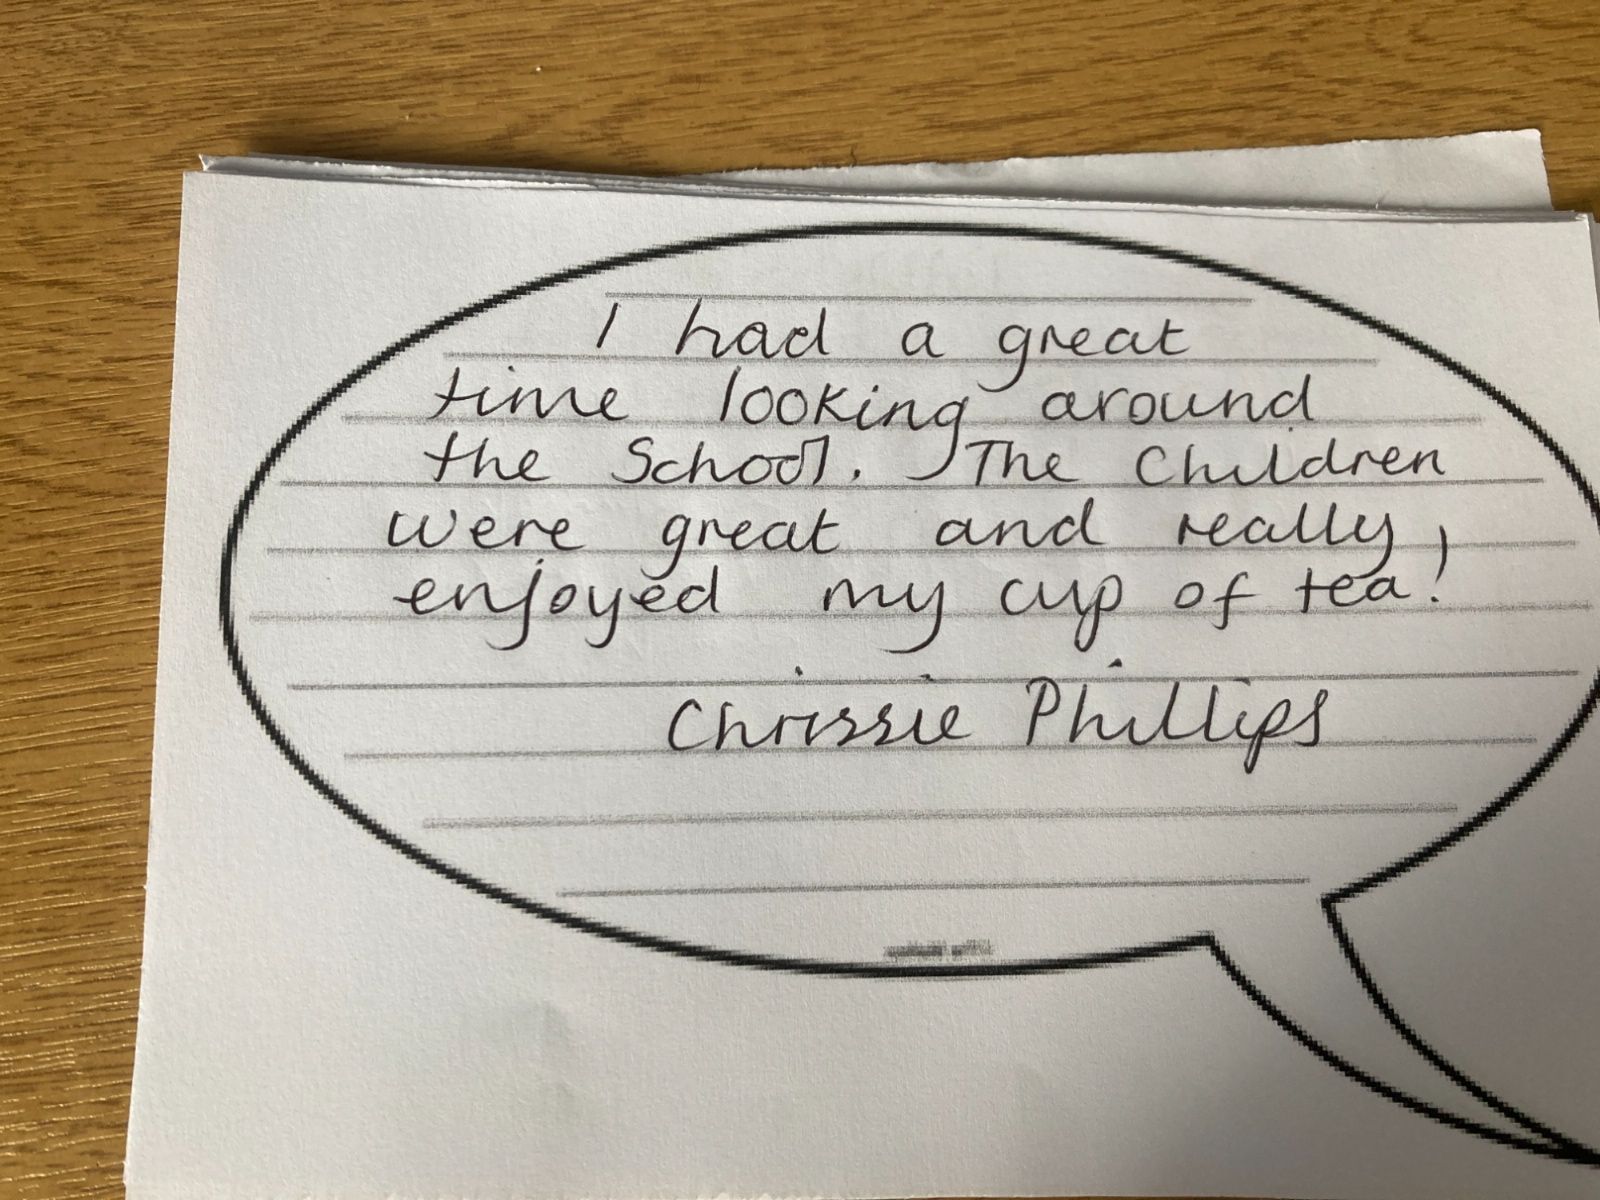 I had a great
time looking around
the School. The Children
were great and really
enjoyed my cup of tea!
Chrissie Phillips